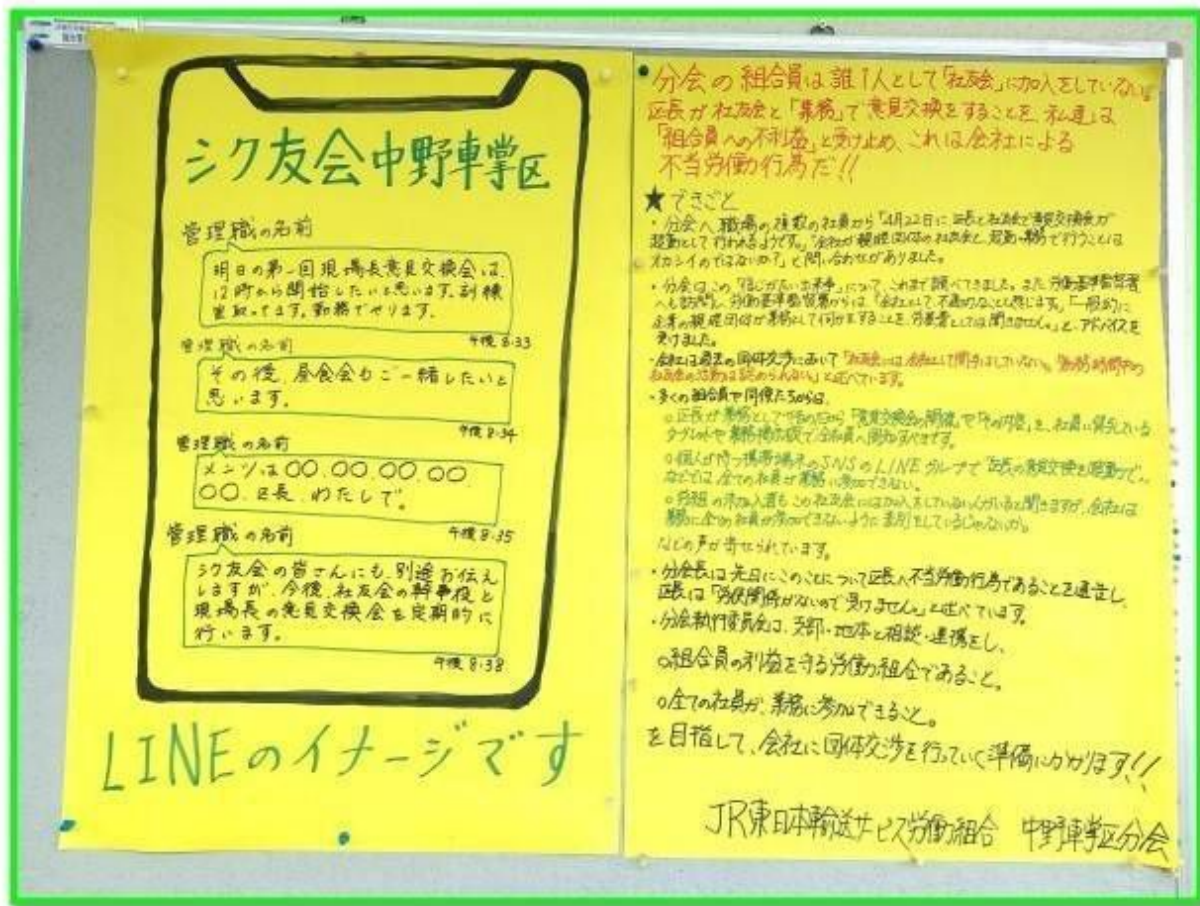 シク友会中野車掌区
管理職の名前
明日の第一回現場長意見交換会は、
12時から開始したいと思います。訓練
室取ってます。勤務でやります。
午後8:33
管理職の名前
その後、昼食会もご一緒したいと
思います。
午後8:34
管理職の名前
メンツは〇〇、〇〇、〇〇、〇〇
〇〇、区長、わたしで。
午後8:35
管理職の名前
シク友会の皆さんにも、別途お伝え
しますが、今後、社友会の幹事役と
現場長の意見交換会を定期的に
行います。
午後8:38
LINEのイメージです
分会の組合員は誰1人として「社友会」に加入をしていない。
区長が社友会と「業務」で意見交換をすることを、私達は
「組合員への不利益」と受け止め、これは会社による
不当労働行為だ!!
★できごと
・分会へ職場の複数の社員から「4月22日に区長と社友会で意見交換会が
超勤として行われるようです。」「会社が親睦団体の社友会と、超勤・業務で行うことは
オカシイのではないか?」と問い合わせがありました。
・分会はこの「信じがたい出来事」について、これまで調べてきました。また労働基準監督署
へも訪問し、労働基準監督署からは、「会社として不適切なことと感じます。」「一般的に
企業の親睦団体が業務として何かをすることを、労基署としては聞きません。」と、アドバイスを
受けました。
・会社は過去の団体交渉において「社友会には会社として関与はしていない。」「勤務時間中の
社友会の活動は認められない」と述べています。
・多くの組合員や同僚たちからは、
○区長が業務として行うのだから「意見交換会の開催」や「その内容」を、社員に貸与している
タブレットや業務掲示板で全社員へ周知すべきです。
○個人が持つ携帯端末のSNSのLINEグループで「区長の意見交換を超勤で」
などでは、全ての社員が業務に参加できない。
○労組の未加入者もこの社友会には加入をしていない人がいると聞きますが、会社は
業務に全ての社員が参加できないように差別をしているじゃないか。
などの声が寄せられています。
・分会長は先日にこのことについて区長へ不当労働行為であることを通告し、
区長は「労使関係がないので受けません。」と述べています。
・分会執行委員会は、支部・地本と相談・連携をし、
○組合員の利益を守る労働組合であること。
○全ての社員が、業務に参加できること。
を目指して、会社に団体交渉を行っていく準備にかかります!!
JR東日本輸送サービス労働組合 中野車掌区分会